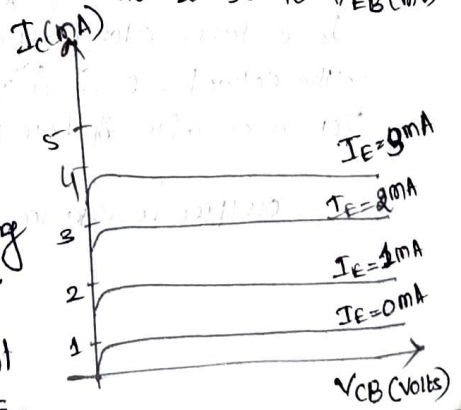 Ic(mA)
5
4
3
2
1
IE=3mA
IE=2mA
IE=1mA
IE=0mA
VCB (Volts)